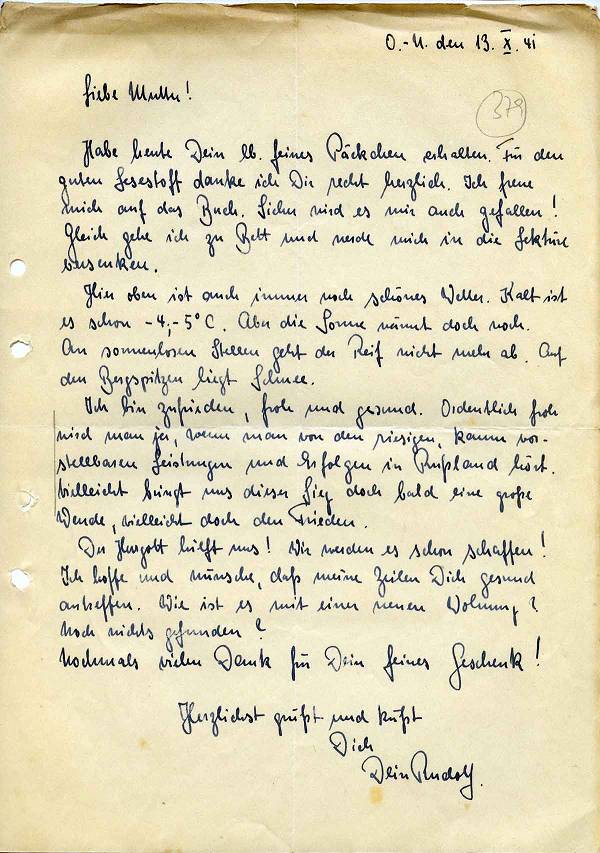 O.-U. den 13. X. 41
Liebe Mutter!
379
Habe heute Dein lb. feines Päckchen erhalten. Für den
guten Lesestoff danke ich Dir recht herzlich. Ich freue
mich auf das Buch. Sicher wird es mir auch gefallen!
Gleich gehe ich zu Bett und werde mich in die Lektüre
versenken.
Hier oben ist auch immer noch schönes Wetter. Kalt ist
es schon -4,-5° C. Aber die Sonne wärmt doch noch.
An sonnenlosen Stellen geht der Reif nicht mehr ab. Auf
den Bergspitzen liegt Schnee.
Ich bin zufrieden, froh und gesund. Ordentlich froh
wird man ja, wenn man von den riesigen, kaum vor-
stellbaren Leistungen und Erfolgen in Rußland hört.
Vielleicht bringt uns dieser Sieg doch bald eine große
Wende, vielleicht doch den Frieden.
Der Herrgott hilft uns! Wir werden es schon schaffen!
Ich hoffe und wünsche, daß meine Zeilen Dich gesund
antreffen. Wie ist es mit einer neuen Wohnung?
Noch nichts gefunden?
Nochmals vielen Dank für Dein feines Geschenk!
Herzlichst grüßt und küßt
Dich
Dein Rudolf.